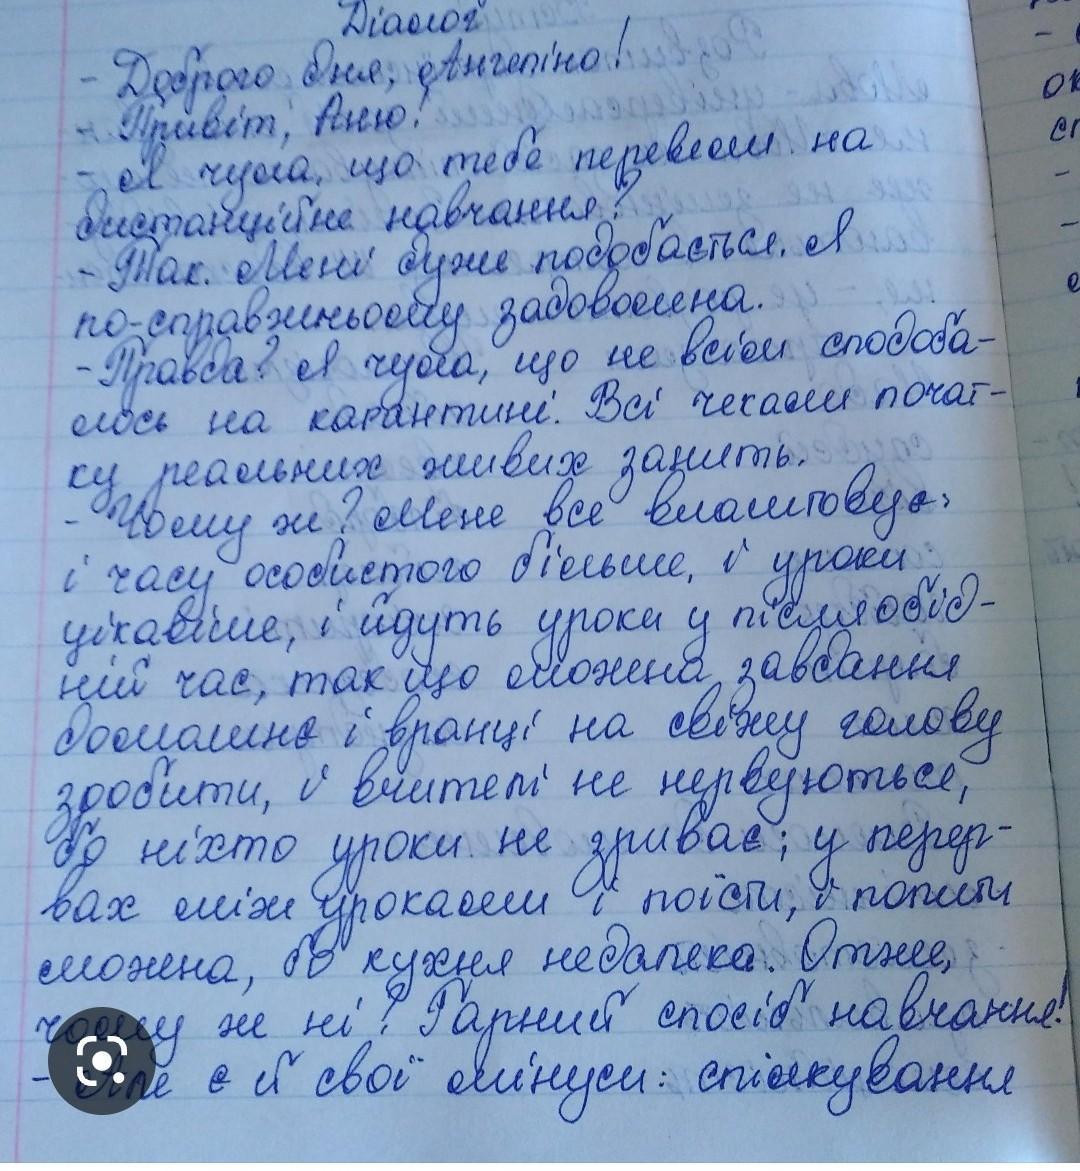 Діалог
- Доброго дня, Ангеліно!
- Привіт, Аню!
- Я чула, що тебе перевели на
дистанційне навчання?
- Так. Мені дуже подобається. Я
по-справжньому задоволена.
- Правда? Я чула, що не всім сподоба-
лось на карантині. Всі чекали почат-
ку реальних живих занять.
- Чому ж? Мене все влаштовує:
і часу особистого більше, й уроки
цікавіше, і йдуть уроки у післяобід-
ній час, так що можна завдання
домашнє і вранці на свіжу голову
зробити, й вчителі не нервуються,
бо ніхто уроки не зриває; у перер-
вах між уроками і поїсти, й попити
можна, бо кухня недалека. Отже,
чому ж ні? Гарний спосіб навчання!
- Але є й свої мінуси: спілкування